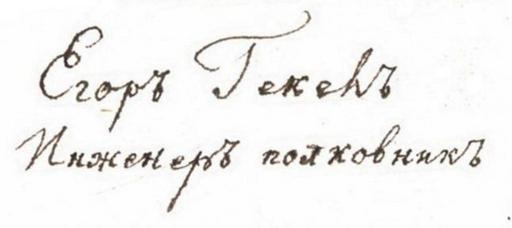 Егоръ Гекень
Инженеръ полковникъ